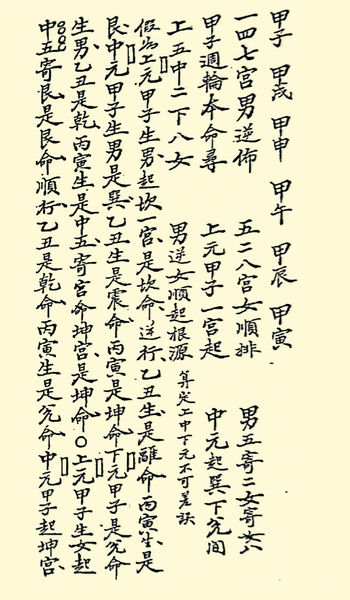 甲子 甲戌 甲申 甲午 甲辰 甲寅
一四七宮男逆佈 五二八宮女順排 男五寄二女寄八
甲子週輪本命尋 上元甲子一宮起 中元起巽下兌間
上五中二下八女 男逆女順起根源 算定上中下元不可差誤
假如上元甲子生男起坎一宮是坎命逆行乙丑生是離命丙寅生是
艮中元甲子生男是巽乙丑生是震命丙寅是坤命下元甲子是兌命
生男乙丑是乾丙寅生是中五寄宮命坤宮是坤命○上元甲子生女起
中五寄艮是艮命順行乙丑是乾命丙寅生是兌命中元甲子起坤宮